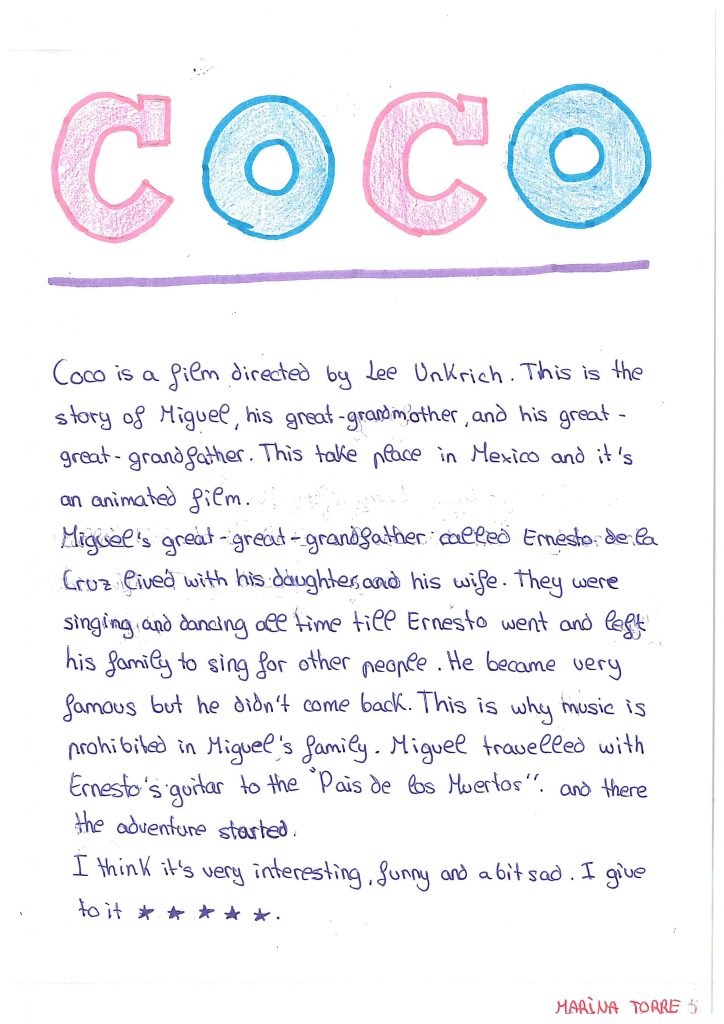 COCO
Coco is a film directed by Lee Unkrich. This is the
story of Miguel, his great-grandmother, and his great-
great-grandfather. This take place in Mexico and it's
an animated film.
Miguel's great-great-grandfather called Ernesto de la
Cruz lived with his daughter and his wife. They were
singing and dancing all time till Ernesto went and left
his family to sing for other people. He became very
famous but he didn't come back. This is why music is
prohibited in Miguel's family. Miguel travelled with
Ernesto's guitar to the "Pais de los Muertos". and there
the adventure started.
I think it's very interesting, funny and a bit sad. I give
to it ★ ★ ★ ★ ★.
MARINA TORRE 5